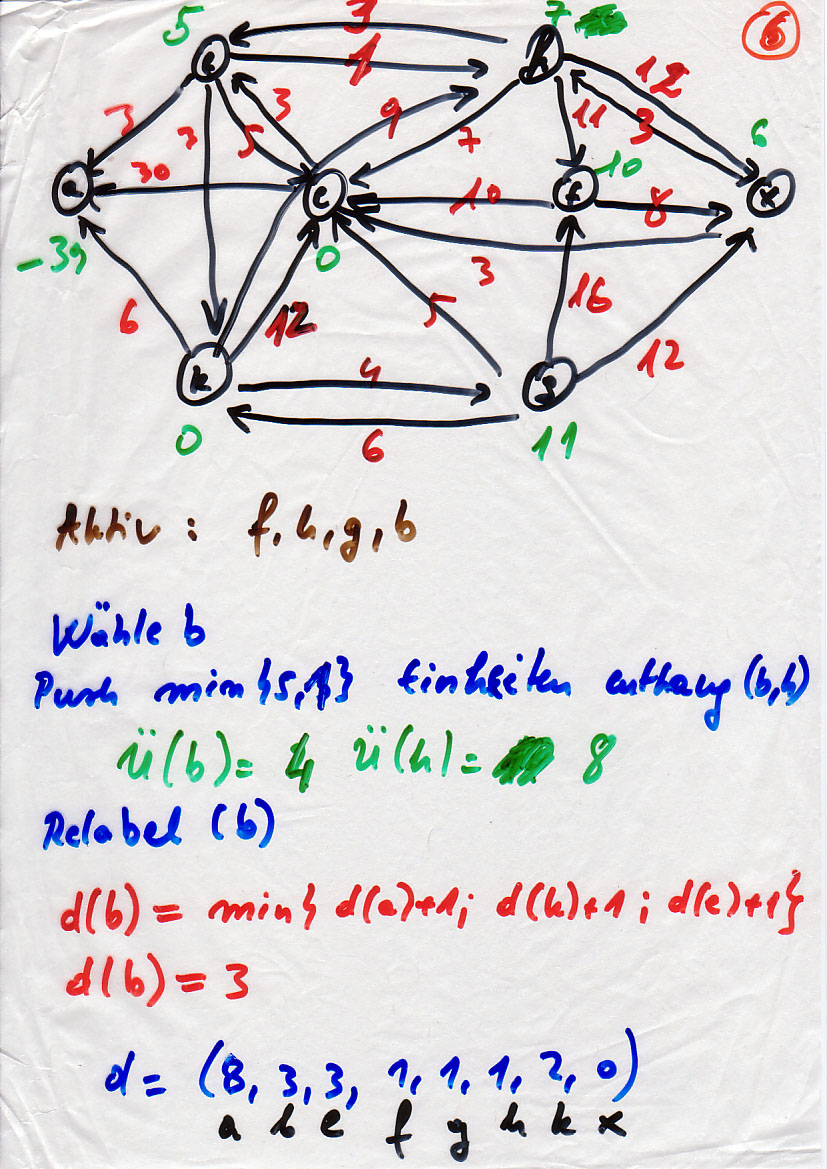 6
5 3 7
1 12
3 7 5 3 9 7 11 3 6
10
a 30 e 10 f 8 x
-39 0
6 12 3 5 16 12
k 4 g
0 6 11
Aktiv: f,h,g,b
Wähle b
Push min{5,1} Einheiten entlang (b,h)
ü(b)= 4 ü(h)= 8
Relabel (b)
d(b) = min{ d(a)+1; d(k)+1; d(e)+1}
d(b) = 3
d= (8, 3, 3, 1, 1, 1, 2, 0)
a b e f g h k x